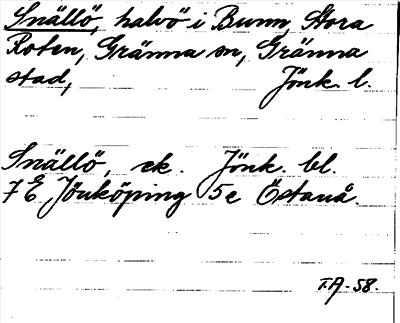 Snällö, halvö i Bunn, Stora
Roten, Gränna sn, Gränna
stad, Jönk. l.
Snällö, ek. Jönk. bl.
7 E Jönköping 5e Östanå
T.A-58.